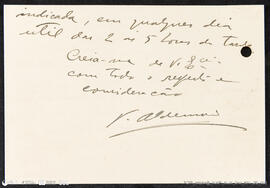 indicada, em qualquer dia
util das 2 ás 5 horas da tarde
Creia-me de V. Exª
com todo o respeito e
consideração
V. Aldemira